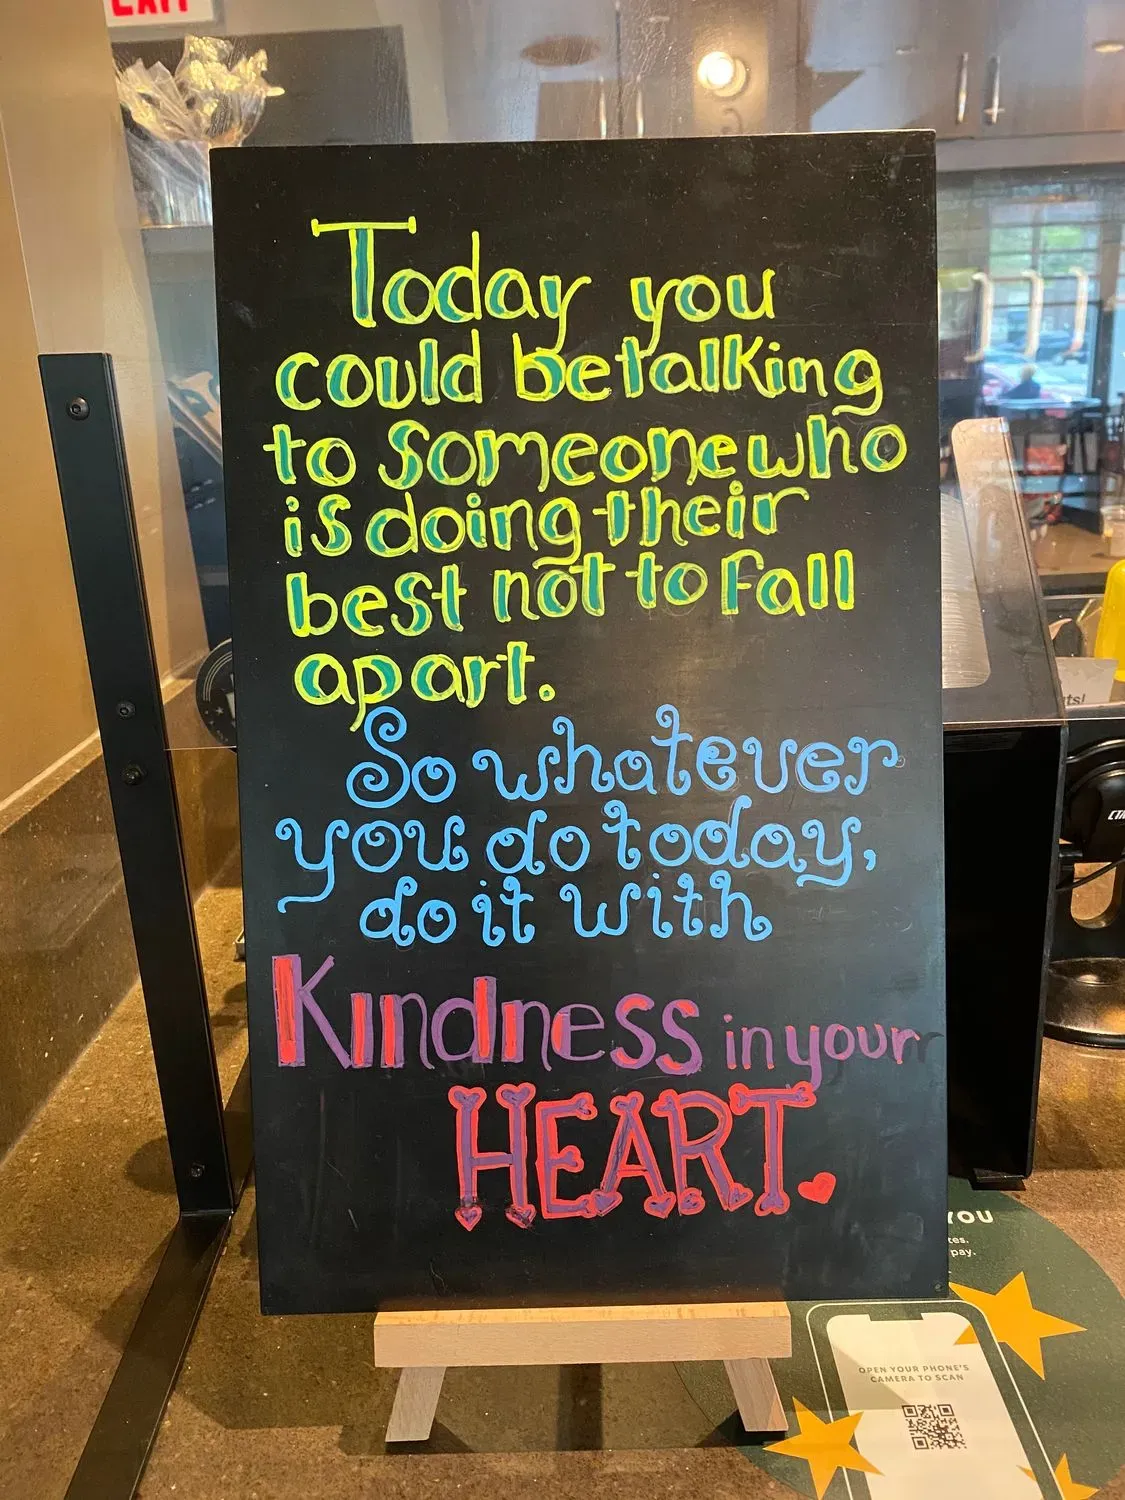 EXIT
Today you
could be talking
to someone who
is doing their
best not to fall
apart.
So whatever
you do today,
do it with
Kindness in your
HEART.
YOU
pay.
OPEN YOUR PHONE'S
CAMERA TO SCAN